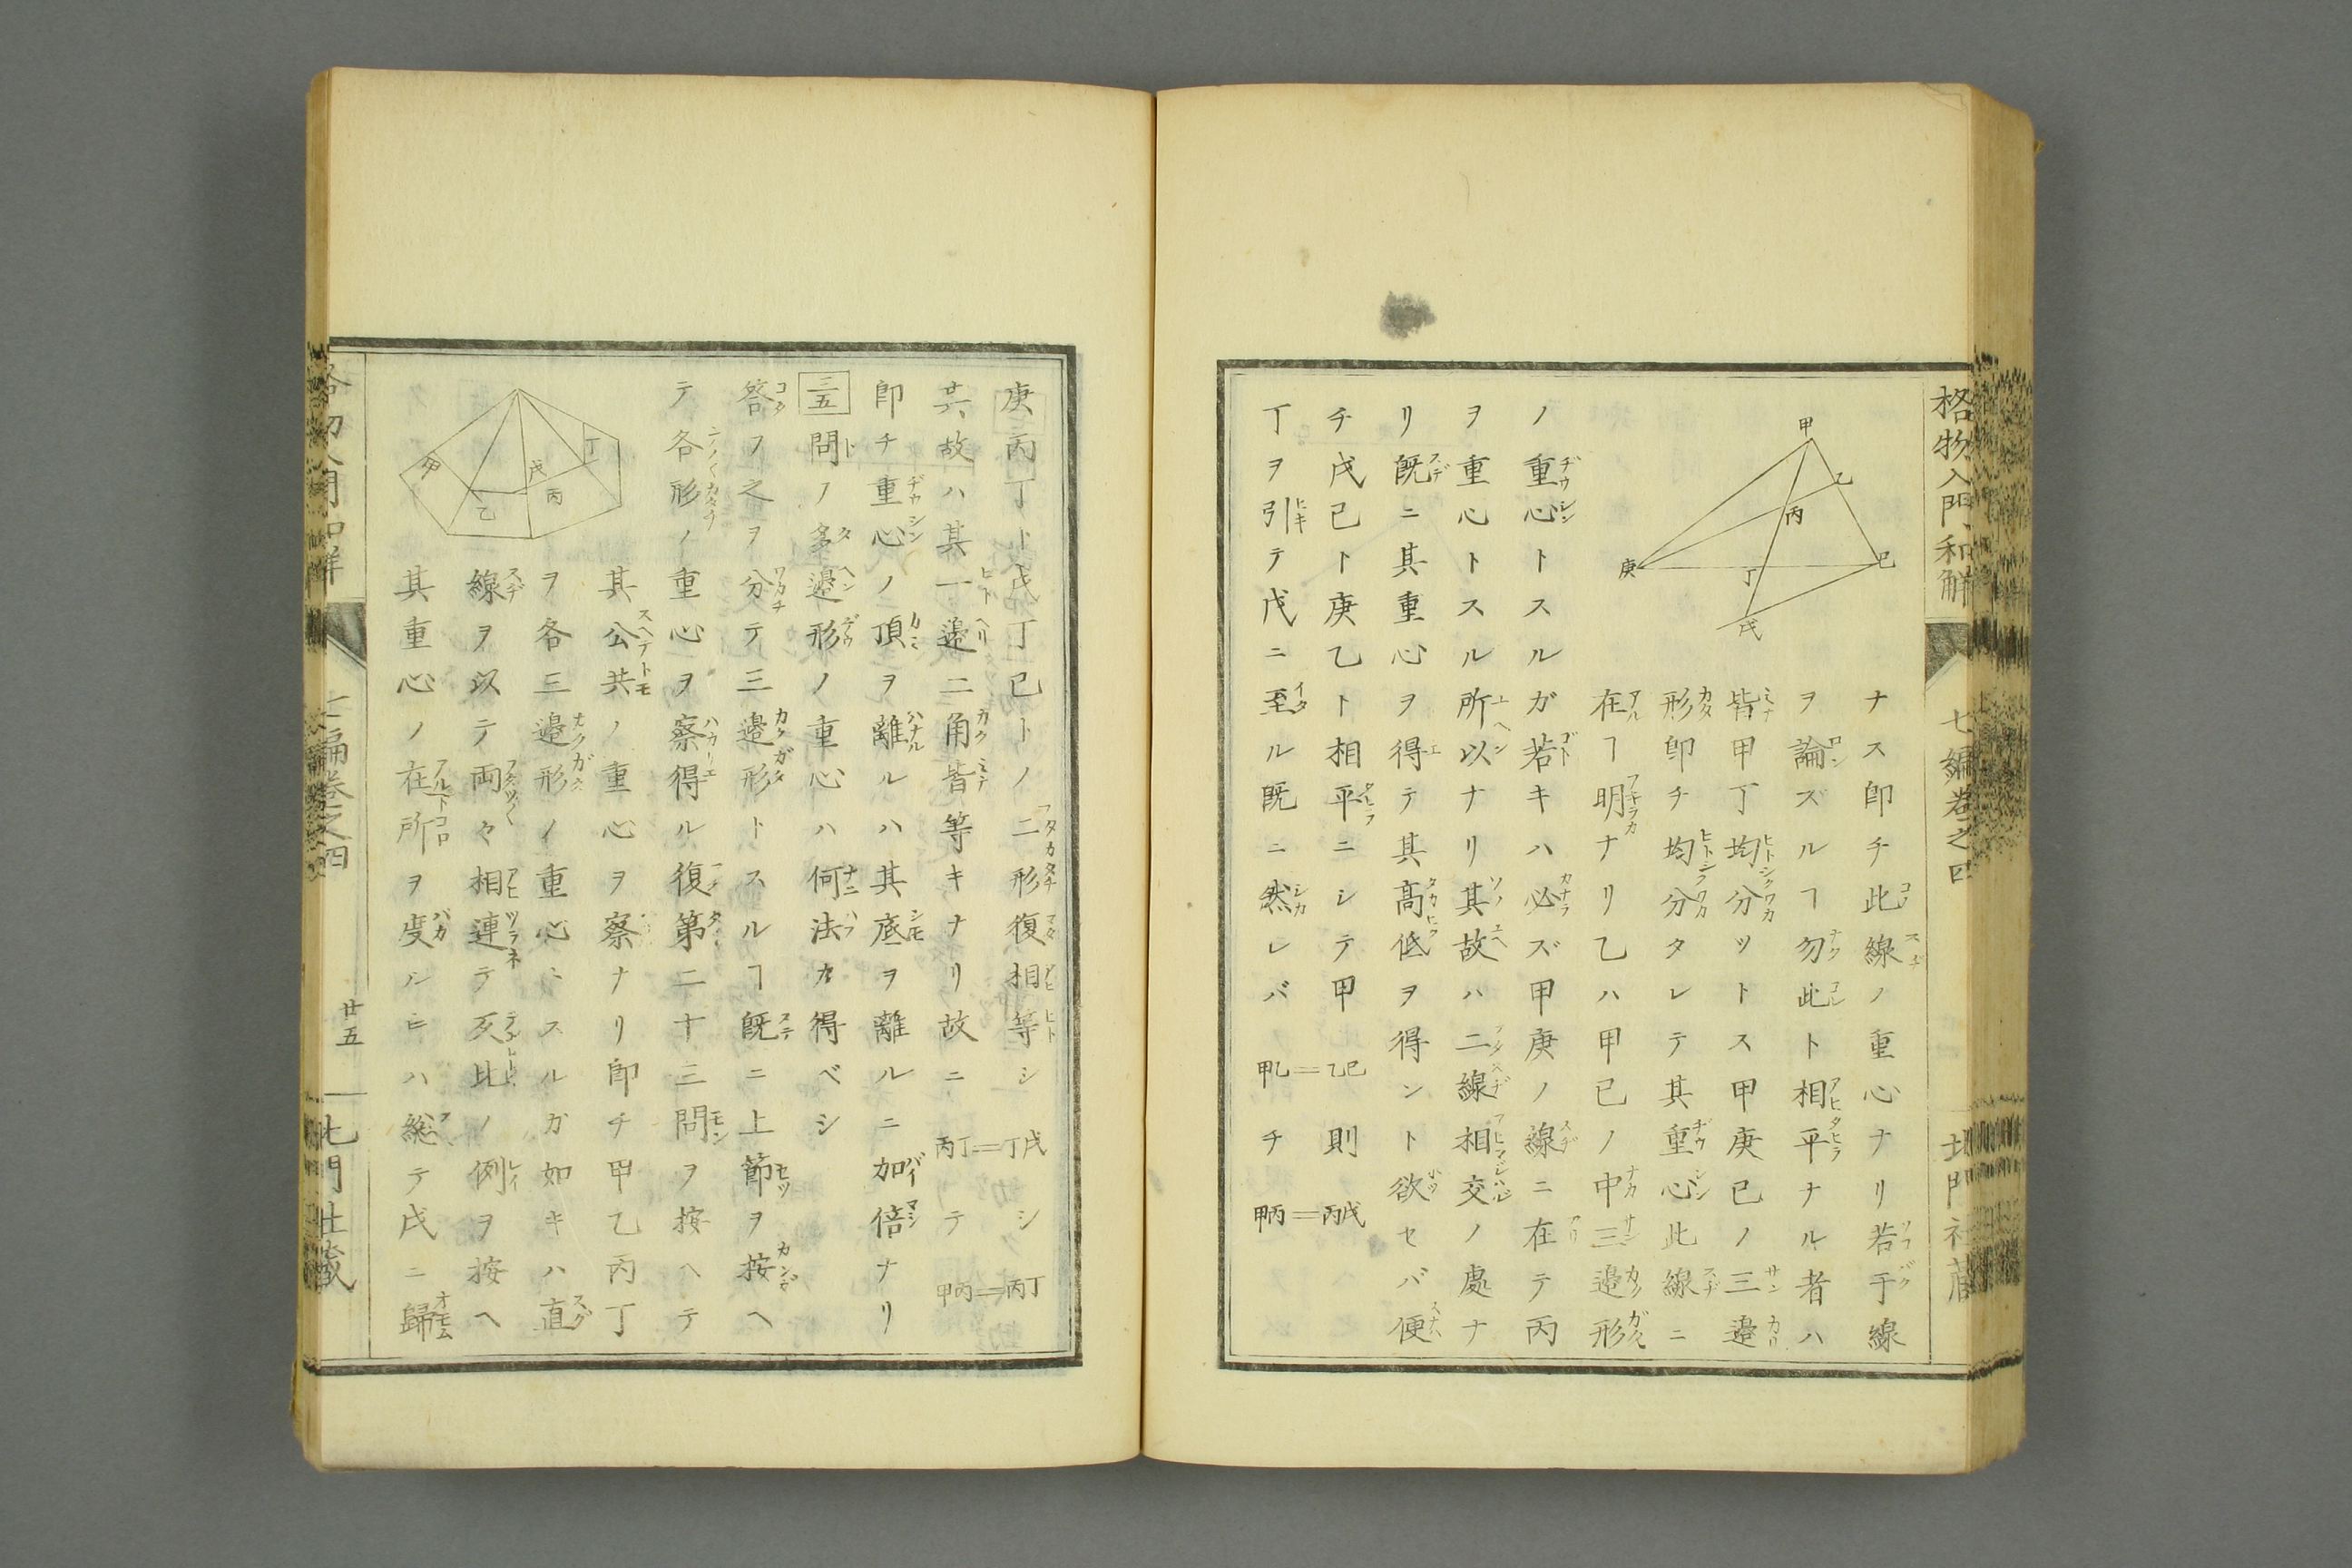 格物入門和解
七編卷之四
北門社藏
甲
乙
丙
庚
丁
己
戊
ナス即チ此線ノ重心ナリ若干線
ヲ論ズルヿ勿此ト相平ナル者ハ
皆甲丁均分ツトス甲庚已ノ三邉
形即チ均分タレテ其重心此線ニ
在ヿ明ナリ乙ハ甲已ノ中三邉形
ノ重心トスルガ若キハ必ズ甲庚ノ線ニ在テ丙
ヲ重心トスル所以ナリ其故ハ二線相交ノ處ナ
リ既ニ其重心ヲ得テ其高低ヲ得ント欲セバ便
チ戊已ト庚乙ト相平ニシテ甲
丁ヲ引テ戊ニ至ル既ニ然レバ
甲乙=乙已 則チ 甲丙=丙戊
庚丙丁ト戊丁已トノ二形復相等シ
其故ハ其一邉二角皆等キナリ故ニ
丙丁=丁戊 シテ 甲丙=丙丁
即チ重心ノ頂ヲ離ルハ其底ヲ離ルニ加倍ナリ
三五 問ノ多邉形ノ重心ハ何法カ得ベシ
答ヲ之ヲ分テ三邉形トスルヿ既ニ上節ヲ按ヘ
テ各形ノ重心ヲ察得ル復第二十三問ヲ按ヘテ
其公共ノ重心ヲ察ナリ即チ甲乙丙丁
ヲ各三邉形ノ重心トスルガ如キハ直
線ヲ以テ両々相連テ及比ノ例ヲ按ヘ
其重心ノ在所ヲ度シキハ総テ戊ニ歸
甲
乙
丙
丁
戊
七編卷之四
廿五
北門社藏